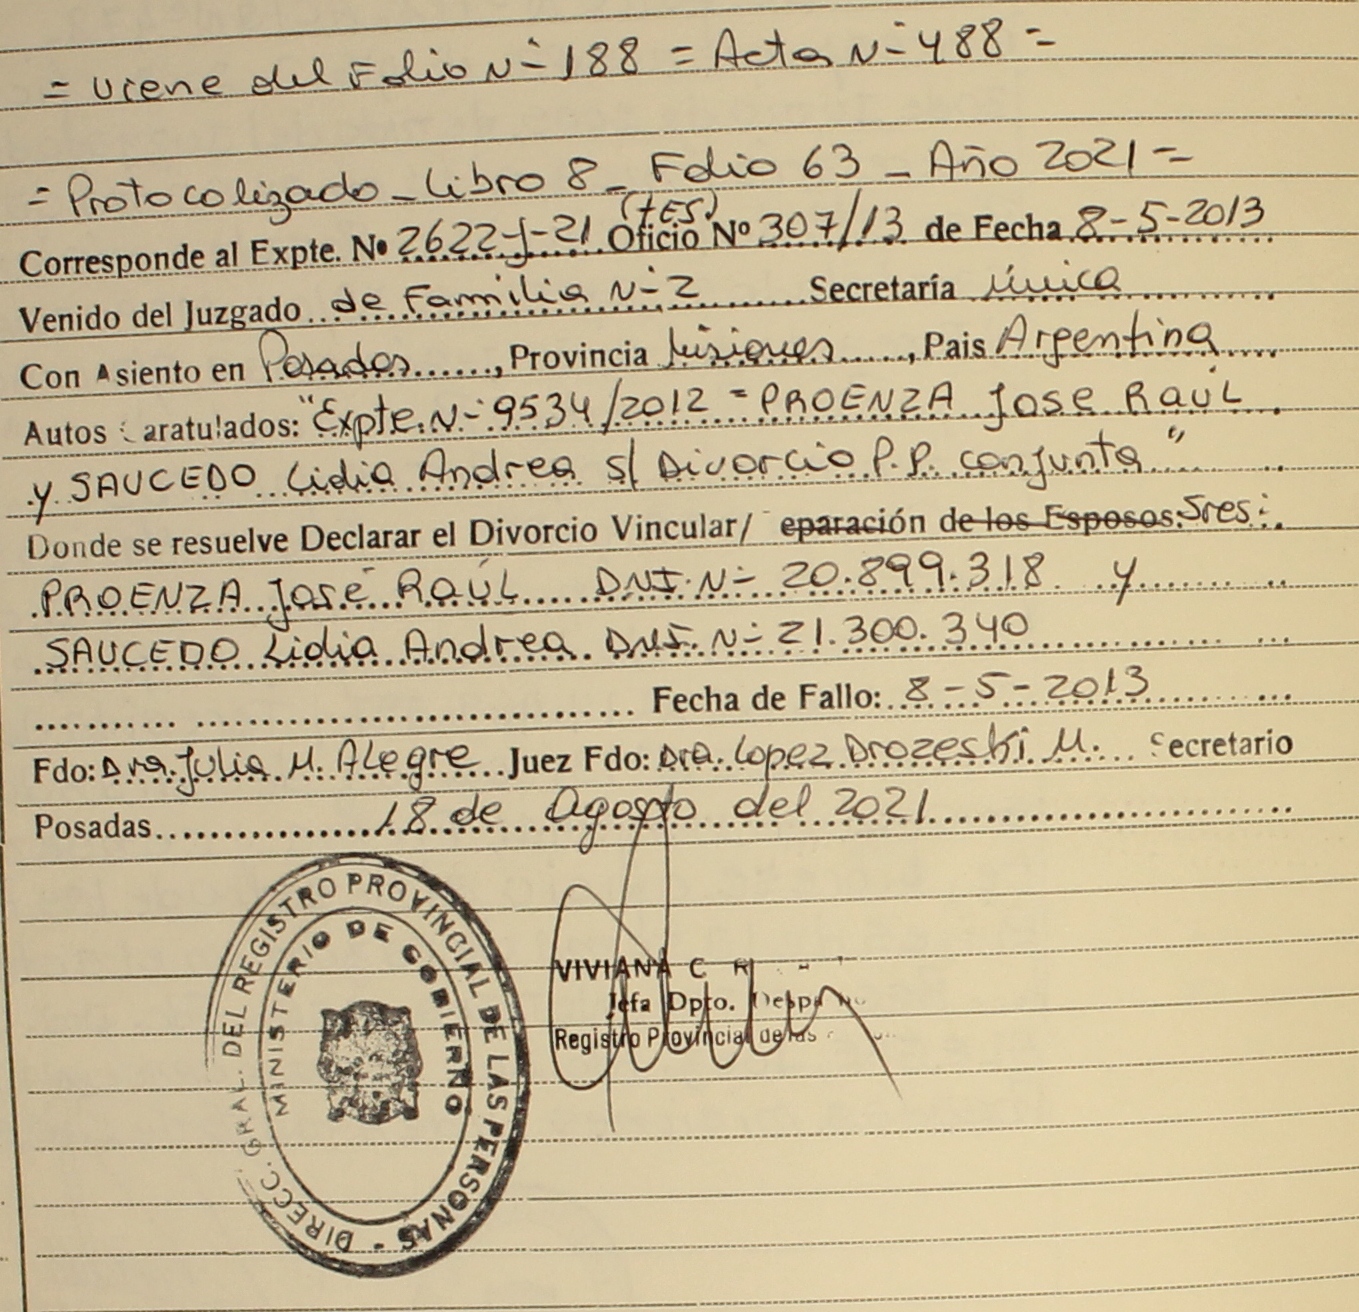 = viene del Folio N- 188 = Acta N- 488 =
= Protocolizado - Libro 8 - Folio 63 - Año 2021 =
(TES)
Corresponde al Expte. Nº 2622-J-21 Oficio Nº 307/13 de Fecha 8-5-2013
Venido del Juzgado de Familia N- 2 Secretaría única
Con Asiento en Posadas, Provincia Misiones, Pais Argentina
Autos Caratulados: "Expte. N- 9534/2012 - PROENZA José RAÚL
y SAUCEDO Lidia Andrea s/ Divorcio P.P. conjunta"
Donde se resuelve Declarar el Divorcio Vincular/ eparación de los Esposos: Sres:
PROENZA José RAÚL DNI. N- 20.899.318 y
SAUCEDO Lidia Andrea DNI. N- 21.300.340
Fecha de Fallo: 8-5-2013
Fdo: Dra. Julia M. Alegre Juez Fdo: Dra. Lopez Drozeski M. Secretario
Posadas 18 de Agosto del 2021
DIRECC. GRAL. DEL REGISTRO PROVINCIAL DE LAS PERSONAS -
MINISTERIO DE GOBIERNO
VIVIANA C
Jefa Dpto.
Registro Provincial de las